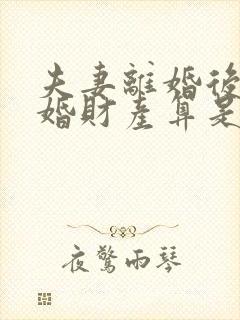 夫妻離婚後
婚財產算是
夜驚雨琴